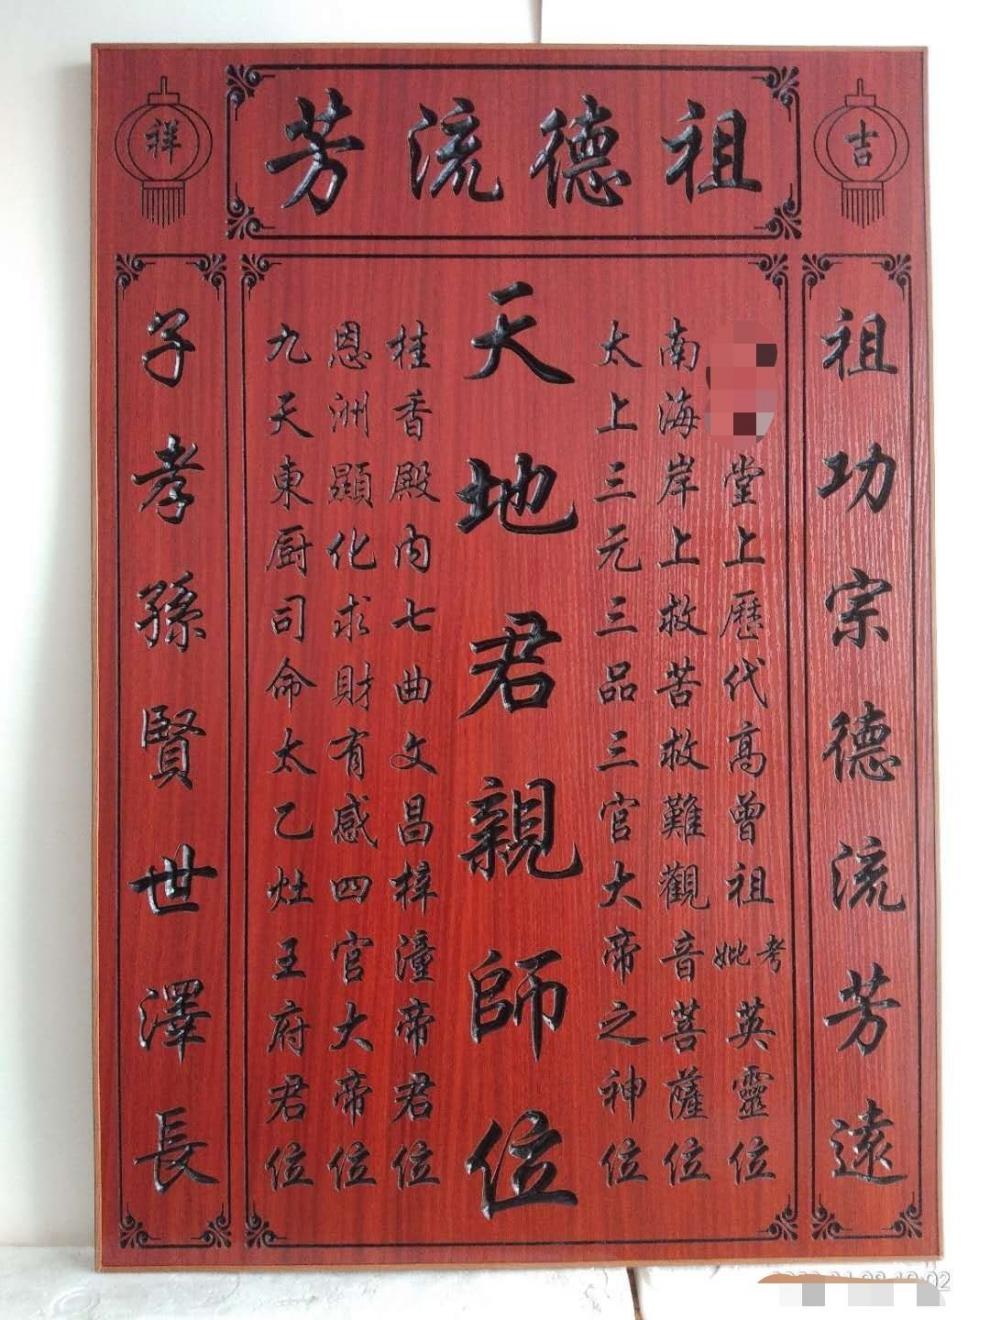 吉
祖德流芳
祥
祖功宗德流芳遠
堂上歷代高曾祖考妣英靈位
南海岸上救苦救難觀音菩薩位
太上三元三品三官大帝之神位
天地君親師位
桂香殿內七曲文昌梓潼帝君位
恩洲顯化求財有感四官大帝位
九天東厨司命太乙灶王府君位
子孝孫賢世澤長